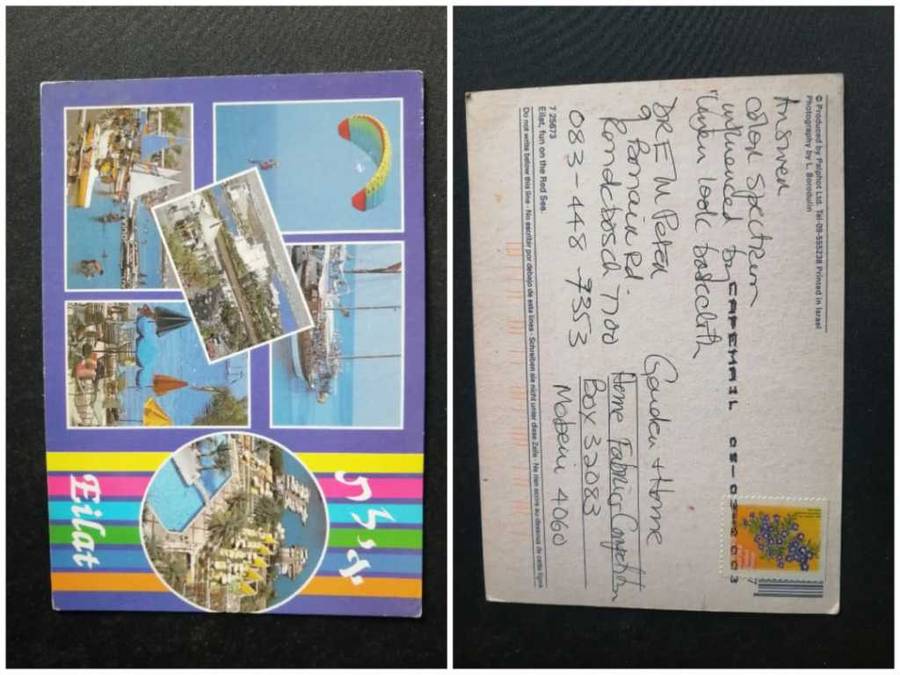 אילת
Eilat
© Produced by Palphot Ltd. Tel-09-555238 Printed in Israel
Photography by L. Borodulin
Answer
color spectrum
influenced by
"Linen look basecloth
CAPEMAIL
DR E M Peter
9 Rd
Rondebosch 7700
083-448 7353
Garden + Home
Home Fabrics Competition
Box 32083
Mobeni 4060
7 25673
Eilat, fun on the Red Sea
Do not write below this line - No escribir por debajo de esta linea - Schreiben sie nicht unter diese Zeile - Ne rien ecrire au dessous de cette ligne